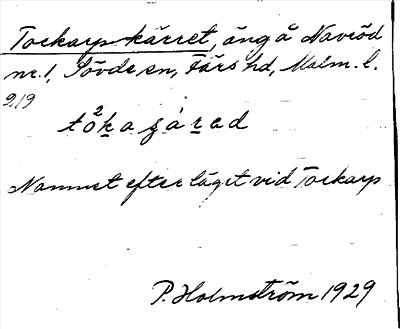 Torkarpskärret, äng å Navröd
nr. 1, Sövde sn, Färs hd, Malm. l.
919
Namnet efter läget vid Torkarp
P. Holmström 1929